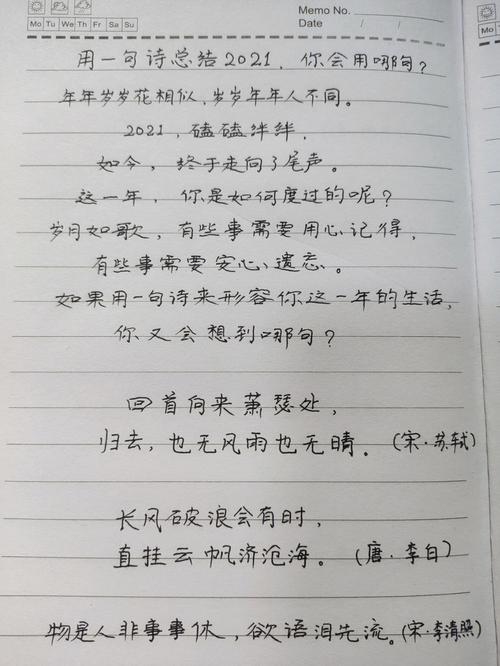 Memo No.
Mo Tu We Th Fr Sa Su
Date / /
Mo
用一句诗总结2021，你会用哪句？
年年岁岁花相似，岁岁年年人不同。
2021，磕磕绊绊，
如今，终于走向了尾声。
这一年，你是如何度过的呢？
岁月如歌，有些事需要用心记得，
有些事需要安心遗忘。
如果用一句诗来形容你这一年的生活，
你又会想到哪句？
回首向来萧瑟处，
归去，也无风雨也无晴。（宋·苏轼）
长风破浪会有时，
直挂云帆济沧海。（唐·李白）
物是人非事事休，欲语泪先流。（宋·李清照）